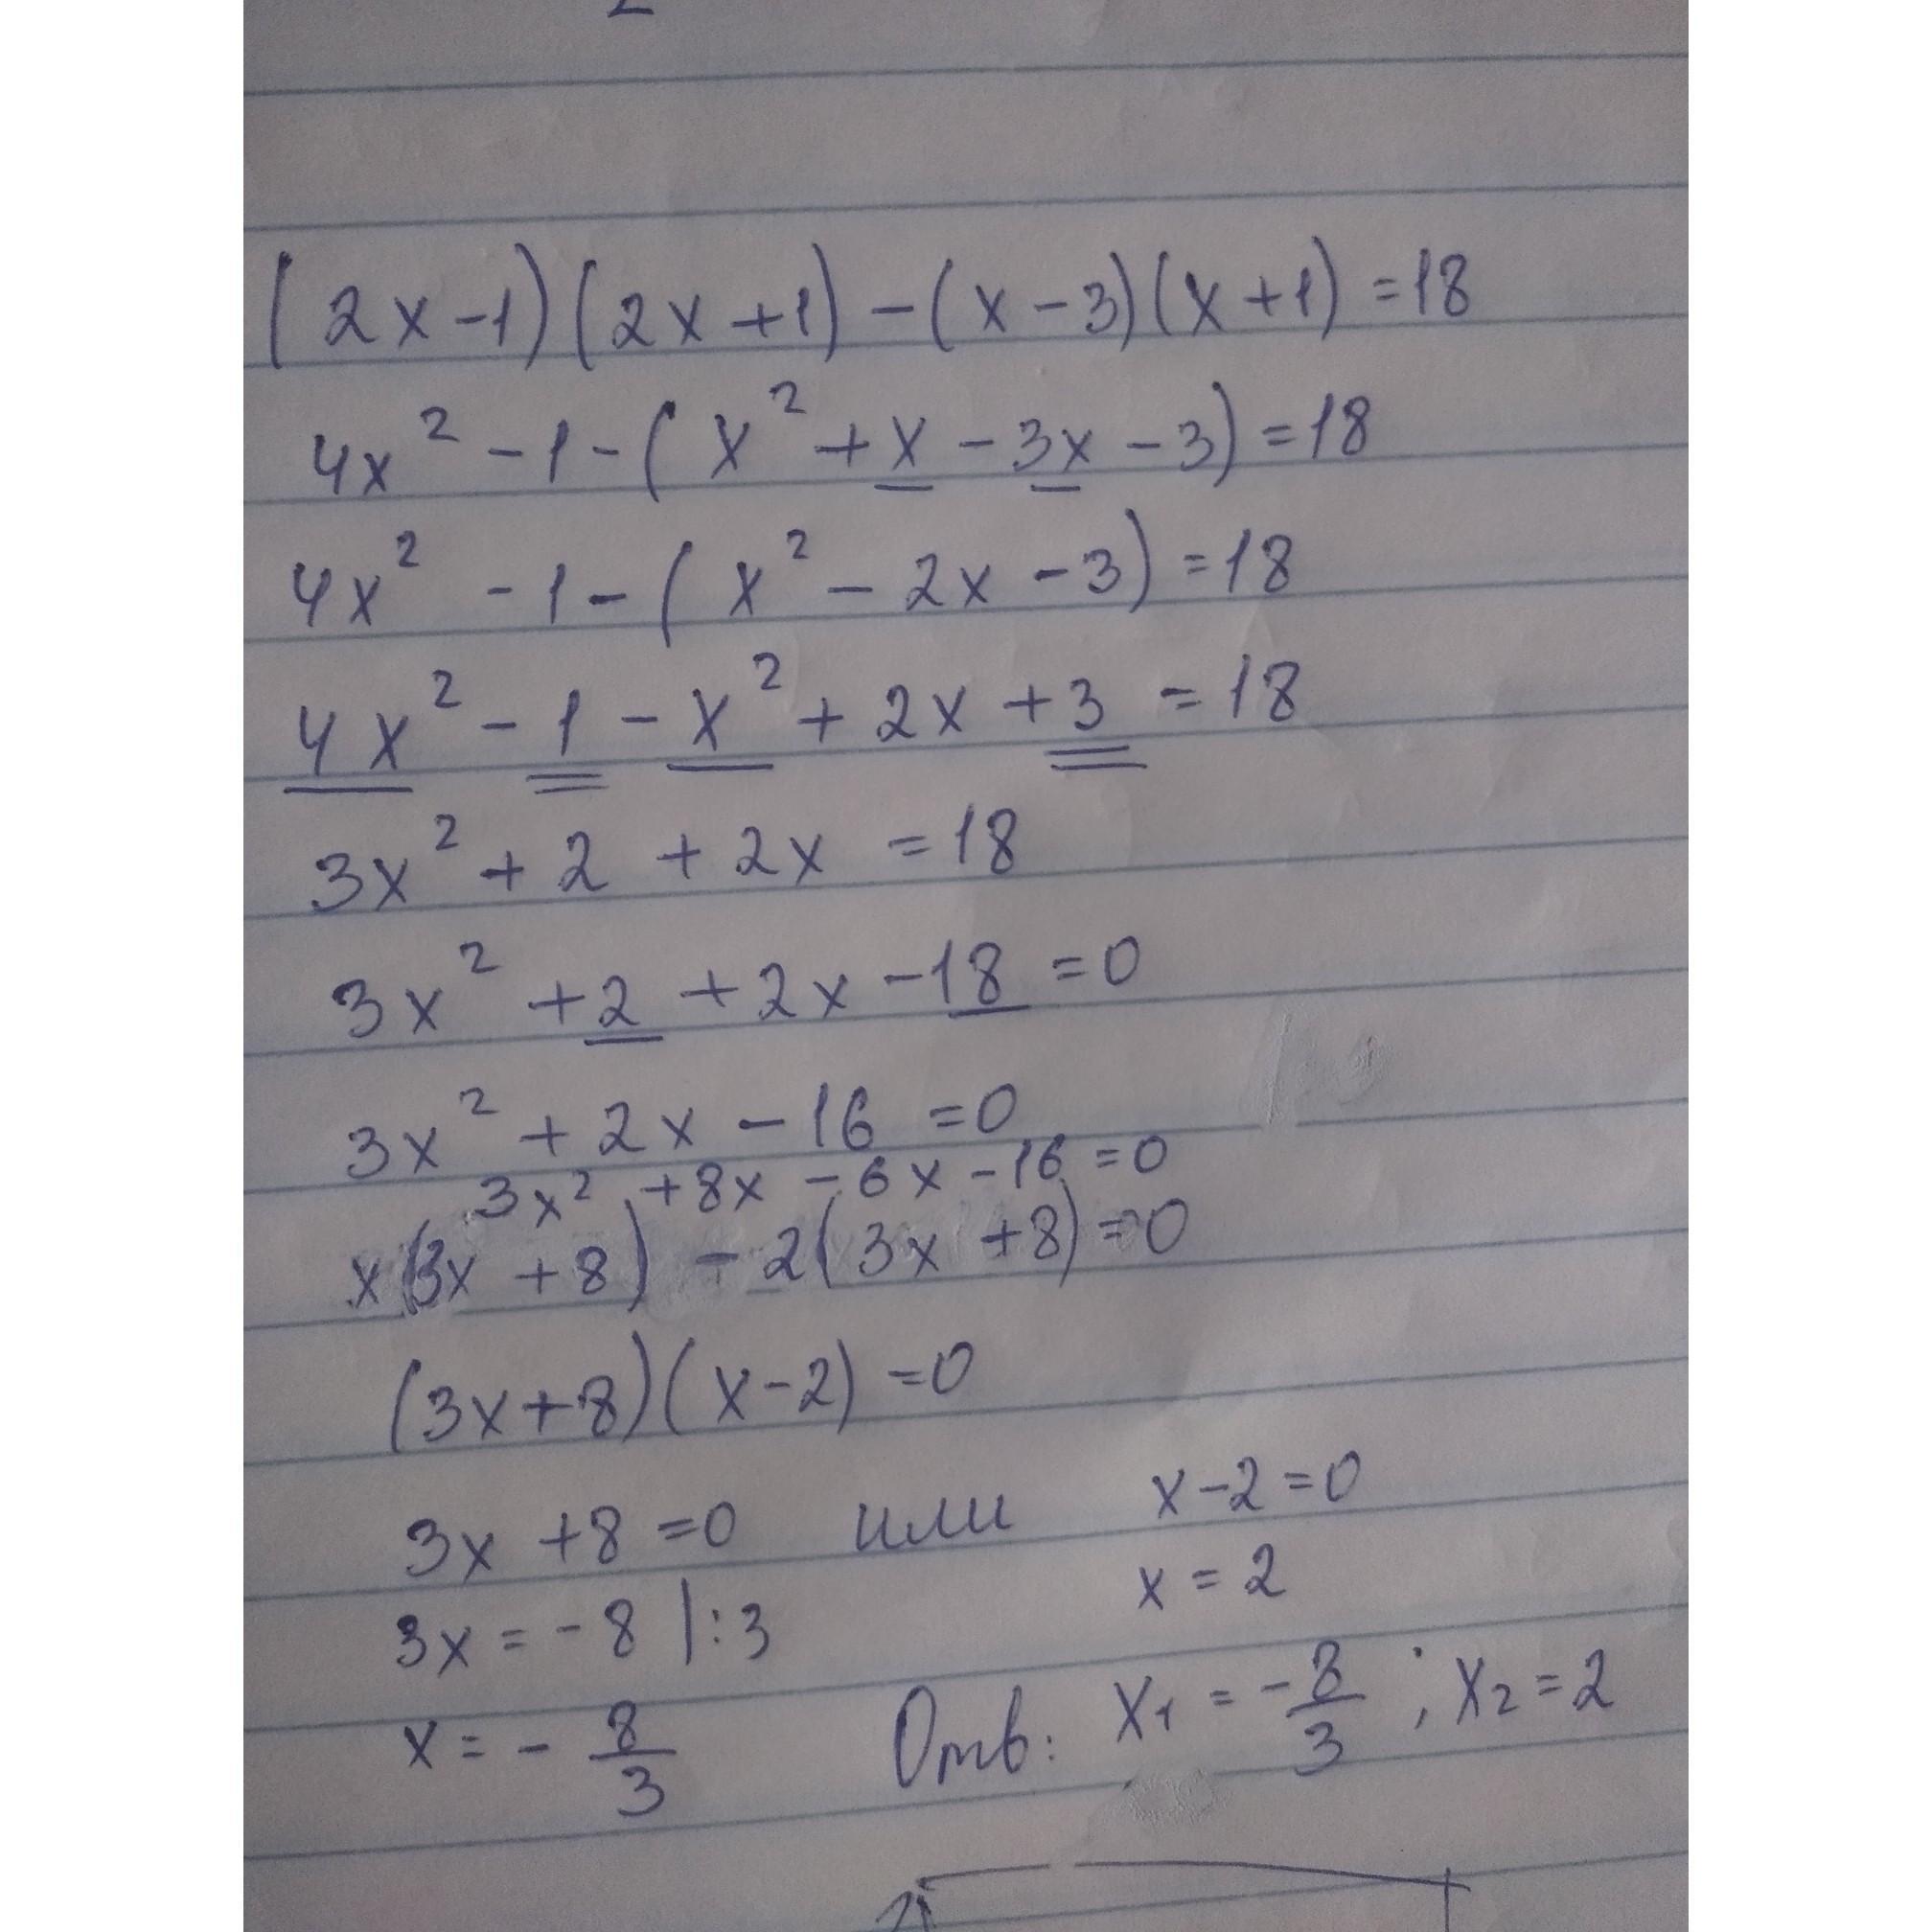 (2x-1)(2x+1)-(x-3)(x+1)=18
4x²-1-(x²+x-3x-3)=18
4x²-1-(x²-2x-3)=18
4x²-1-x²+2x+3=18
3x²+2+2x=18
3x²+2+2x-18=0
3x²+2x-16=0
3x²+8x-6x-16=0
x(3x+8)-2(3x+8)=0
(3x+8)(x-2)=0
3x+8=0 или x-2=0
3x=-8 |:3 x=2
x=-8/3 Отв: x₁=-8/3; x₂=2